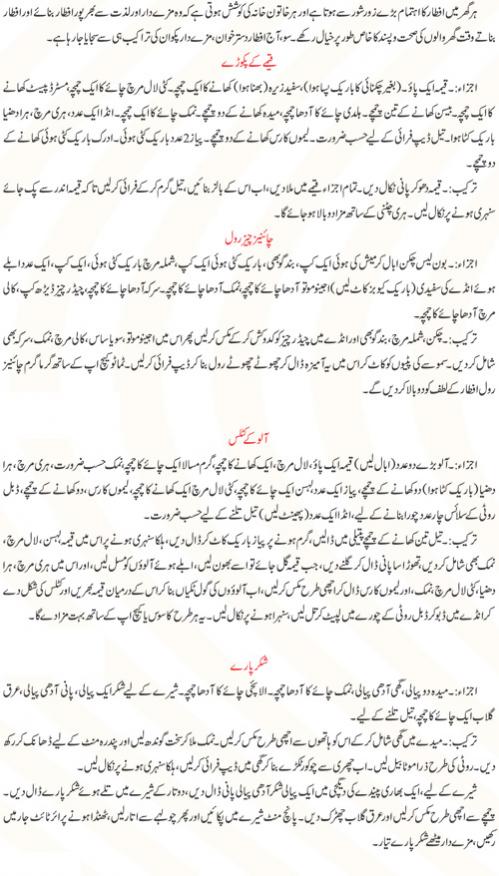 ہر گھر میں افطار کا اہتمام بڑے زور شور سے ہوتا ہے اور ہر خاتون خانہ کی کوشش ہوتی ہے کہ وہ مزے دار اور لذت سے بھرپور افطار بنائے اور افطار
بناتے وقت گھر والوں کی صحت و پسند کا خاص طور پر خیال رکھے۔ سو، آج افطار دسترخوان، مزے دار پکوان کی تراکیب ہی سے سجایا جا رہا ہے۔
قیمے کے پکوڑے
اجزاء:۔ قیمہ ایک پاؤ۔ (بغیر چکنائی کا باریک پسا ہوا)، سفید زیرہ (بھنا ہوا) کھانے کا ایک چمچہ۔ کٹی لال مرچ چائے کا ایک چمچہ، مسٹرڈ پیسٹ کھانے
کا ایک چمچہ۔ بیسن کھانے کے تین چمچے۔ ہلدی چائے کا آدھا چمچہ، میدہ کھانے کے دو چمچے۔ نمک چائے کا ایک چمچہ۔ انڈا ایک عدد، ہری مرچ، ہرا دھنیا
باریک کٹا ہوا۔ تیل ڈیپ فرائی کے لیے حسب ضرورت۔ لیموں کا رس کھانے کے دو چمچے۔ پیاز 2 عدد باریک کٹی ہوئی۔ ادرک باریک کٹی ہوئی کھانے کے
دو چمچے۔
ترکیب:۔ قیمہ دھو کر پانی نکال دیں۔ تمام اجزاء قیمے میں ملا دیں، اب اس کے بالز بنائیں، تیل گرم کر کے فرائی کر لیں تاکہ قیمہ اندر سے پک جائے
سنہری ہونے پر نکال لیں۔ ہری چٹنی کے ساتھ مزا دوبالا ہو جائے گا۔
چائنیز چیز رول
اجزاء:۔ بون لیس چکن ابال کر میش کی ہوئی ایک کپ، بند گوبھی، باریک کٹی ہوئی ایک کپ، شملہ مرچ باریک کٹی ہوئی، ایک کپ، ایک عدد ابلے
ہوئے انڈے کی سفیدی (باریک کیوبز کاٹ لیں) اجینو موتو آدھا چائے کا چمچہ، نمک آدھا چائے کا چمچہ۔ سرکہ آدھا چائے کا چمچہ، چیڈر چیز ڈیڑھ کپ، کالی
مرچ آدھا چائے کا چمچہ۔
ترکیب:۔ چکن، شملہ مرچ، بند گوبھی اور انڈے میں چیڈر چیز کو کدو کش کر کے مکس کر لیں پھر اس میں اجینو موتو، سویا ساس، کالی مرچ، نمک، سرکہ بھی
شامل کر دیں۔ سموسے کی پٹیوں کو کاٹ کر اس میں یہ آمیزہ ڈال کر چھوٹے چھوٹے رول بنا کر ڈیپ فرائی کر لیں۔ ٹماٹو کیچ اپ کے ساتھ گرما گرم چائنیز
رول افطار کے لطف کو دوبالا کر دیں گے۔
آلو کے کٹلس
اجزاء:۔ آلو بڑے دو عدد (ابال لیں) قیمہ ایک پاؤ، لال مرچ، ایک کھانے کا چمچہ، گرم مسالا ایک چائے کا چمچہ، نمک حسب ضرورت، ہری مرچ، ہرا
دھنیا (باریک کٹا ہوا) دو کھانے کے چمچے، پیاز ایک عدد، لہسن ایک چائے کا چمچہ، کٹی لال مرچ ایک چائے کا چمچہ، لیموں کا رس، دو کھانے کے چمچے، ڈبل
روٹی کے سلائس چار عدد چورا بنانے کے لیے، انڈا ایک عدد (پھینٹ لیں) تیل تلنے کے لیے حسب ضرورت۔
ترکیب:۔ تیل تین کھانے کے چمچے پتیلی میں ڈالیں، گرم ہونے پر پیاز باریک کاٹ کر ڈال دیں، ہلکا سنہری ہونے پر اس میں قیمہ، لہسن، لال مرچ،
نمک بھی شامل کر دیں، تھوڑا سا پانی ڈال کر گلنے دیں، جب قیمہ گل جائے تو اسے بھون لیں، ابلے ہوئے آلوؤں کو مسل لیں، اور اس میں ہری مرچ، ہرا
دھنیا، کٹی لال مرچ، نمک، اور لیموں کا رس ڈال کر اچھی طرح مکس کر لیں، اب آلوؤں کی گول ٹکیاں بنا کر اس کے درمیان قیمہ بھریں اور کٹلس کی شکل دے
کر انڈے میں ڈبو کر ڈبل روٹی کے چورے میں لپیٹ کر تل لیں، سنہرا ہونے پر نکال لیں۔ یہ ہر طرح کا سوس یا کیچ اپ کے ساتھ بہت مزا دے گا۔
شکر پارے
اجزاء:۔ میدہ دو پیالی، گھی آدھی پیالی، نمک چائے کا آدھا چمچہ۔ الائچی چائے کا آدھا چمچہ۔ شیرے کے لیے شکر ایک پیالی، پانی آدھی پیالی، عرق
گلاب ایک چائے کا چمچہ، تیل تلنے کے لیے۔
ترکیب:۔ میدے میں گھی شامل کر کے اس کو ہاتھوں سے اچھی طرح مکس کر لیں۔ نمک ملا کر سخت گوندھ لیں اور پندرہ منٹ کے لیے ڈھانک کر رکھ
دیں۔ روٹی کی طرح ذرا موٹا بیل لیں۔ اب چھری سے چوکور ٹکڑے بنا کر گھی میں ڈیپ فرائی کر لیں، ہلکا سنہری ہونے پر نکال لیں۔
شیرے کے لیے، ایک بھاری پیندے کی دیگچی میں ایک پیالی شکر آدھی پیالی پانی ڈال دیں، دو تار کے شیرے میں تلے ہوئے شکر پارے ڈال دیں۔
چمچے سے اچھی طرح مکس کر لیں اور عرق گلاب چھڑک دیں۔ پانچ منٹ شیرے میں پکائیں اور پھر چولہے سے اتار لیں، ٹھنڈا ہونے پر ائر ٹائٹ جار میں
رکھیں، مزے دار میٹھے شکر پارے تیار۔